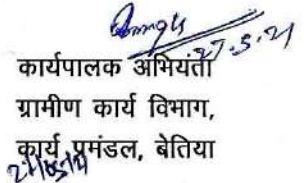 27.5.21
कार्यपालक अभियंता
ग्रामीण कार्य विभाग,
कार्य प्रमंडल, बेतिया